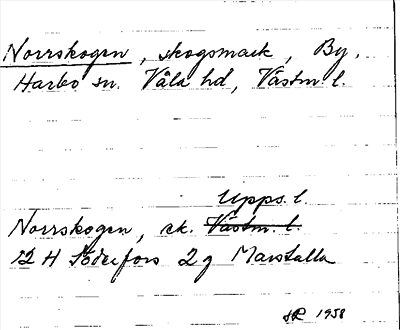 Norrskogen, skogsmark, By.
Harbo sn. Våla hd, Västm. l.
Upps. l.
Norrskogen, ek. Västm. l.
12 H Söderfors 2 g Marstalla
1958